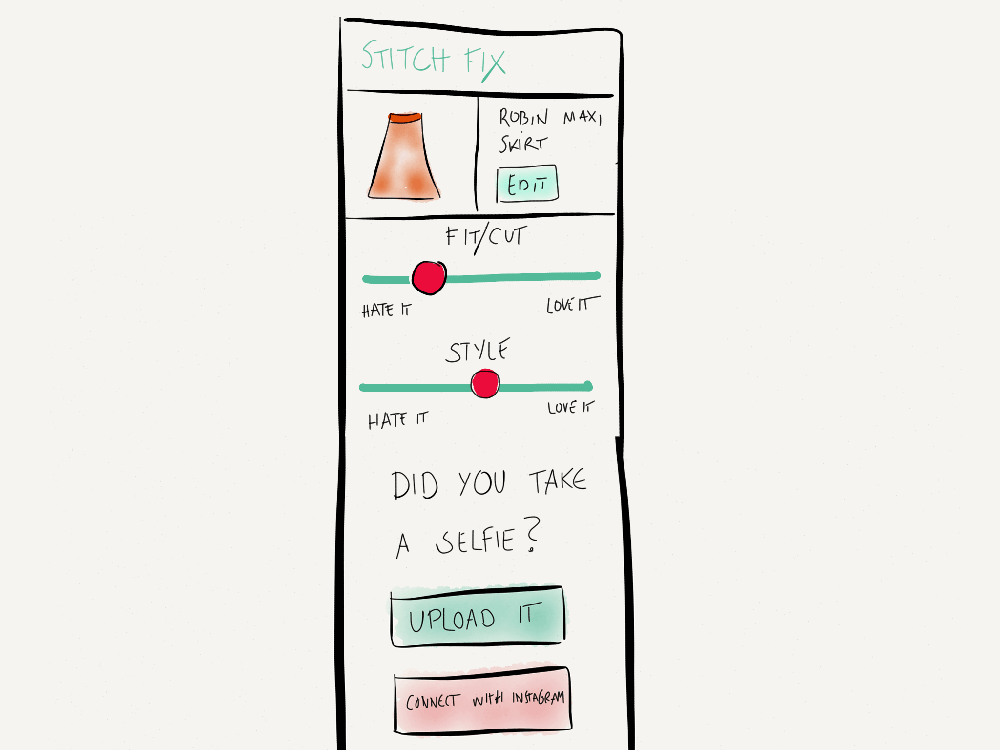 STITCH FIX
ROBIN MAXI
SKIRT
EDIT
FIT/CUT
HATE IT LOVE IT
STYLE
HATE IT LOVE IT
DID YOU TAKE
A SELFIE?
UPLOAD IT
CONNECT WITH INSTAGRAM